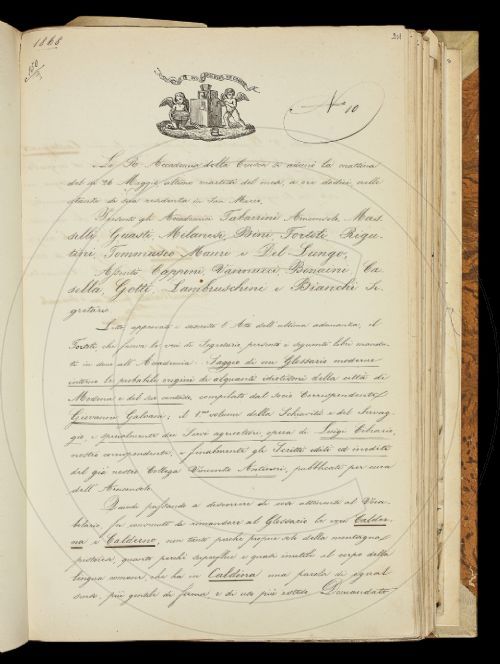 1868
211
No 10
La R. Accademia della Crusca si adunò la mattina
del dì 26 Maggio ultimo martedì del mese, a ore dodici, nelle
stanze di sua residenza in San Marco.
Presenti gli Accademici Tabarrini Arciconsolo, Mas
selli Guasti Milanesi, Bini, Tortoli, Rigu-
tini, Tommaseo, Mauri e Del Lungo,
Assenti Capponi, Vannucci, Bonaini, Ca
sella, Gotti, Lambruschini e Bianchi Se-
gretario.
Letto, approvato e sottoscritto l'Atto dell'ultima adunanza, il
Tortoli, che faceva le veci di Segretario presentò i seguenti libri manda-
ti in dono all'Accademia: Saggio di un Glossario modenese
intorno le probabili origini di alquanti idiotismi della città di
Modena e del suo contado, compilato dal Socio Corrispondente
Giovanni Galvani; il 1mo volume della Schiavitù e del Servag-
gio, e specialmente dei Servi agricoltori, opera di Luigi Cibrario,
nostro corrispondente; e finalmente gli Scritti editi ed inediti
del già nostro Collega Vincenzo Antinori, pubblicati per cura
dell'Arciconsolo.
Quindi passando a discorrere di cose attinenti al Voca-
bolario, fu convenuto di rimandare al Glossario le voci Calder-
na e Calderno, non tanto perchè proprie solo della montagna
pistoiese, quanto perchè superflue e quasi inutili al corpo della
lingua comune, che ha in Caldaia una parola di egual
senso, più gentile di forma e di uso più esteso. Domandato